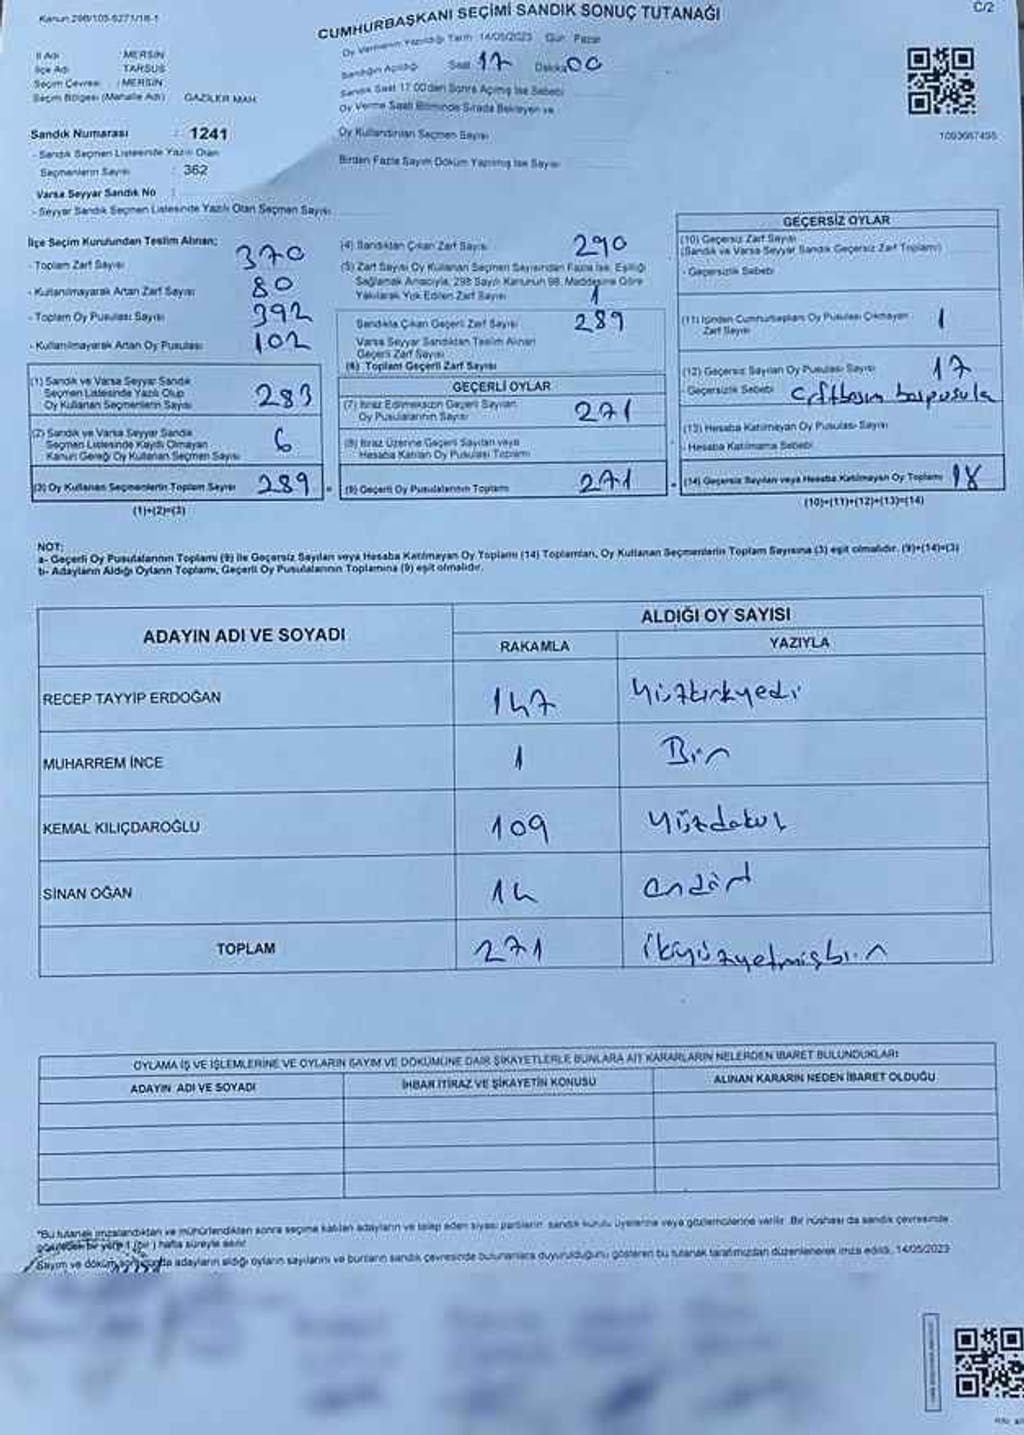 Kanun 298/105-6271/18-1
C/2
CUMHURBAŞKANI SEÇİMİ SANDIK SONUÇ TUTANAĞI
Oy Vermenin Yapıldığı Tarih: 14/05/2023 Gün: Pazar
İl Adı : MERSİN
İlçe Adı : TARSUS
Seçim Çevresi : MERSİN
Seçim Bölgesi (Mahalle Adı) GAZİLER MAH.
Sandığın Açıldığı Saat 17 Dakika 00
Sandık Saat 17.00'den Sonra Açılmış İse Sebebi
Oy Verme Saati Bitiminde Sırada Bekleyen ve
Oy Kullandırılan Seçmen Sayısı
Birden Fazla Sayım Döküm Yapılmış İse Sayısı
Sandık Numarası : 1241
- Sandık Seçmen Listesinde Yazılı Olan
Seçmenlerin Sayısı : 362
Varsa Seyyar Sandık No :
- Seyyar Sandık Seçmen Listesinde Yazılı Olan Seçmen Sayısı
İlçe Seçim Kurulundan Teslim Alınan;
- Toplam Zarf Sayısı 370
- Kullanılmayarak Artan Zarf Sayısı 80
- Toplam Oy Pusulası Sayısı 392
- Kullanılmayarak Artan Oy Pusulası 102
(1) Sandık ve Varsa Seyyar Sandık
Seçmen Listesinde Yazılı Olup
Oy Kullanan Seçmenlerin Sayısı 283
(2) Sandık ve Varsa Seyyar Sandık
Seçmen Listesinde Kayıtlı Olmayan
Kanun Gereği Oy Kullanan Seçmen Sayısı 6
(3) Oy Kullanan Seçmenlerin Toplam Sayısı 289
(1)+(2)=(3)
(4) Sandıktan Çıkan Zarf Sayısı 290
(5) Zarf Sayısı Oy Kullanan Seçmen Sayısından Fazla İse, Eşitliği
Sağlamak Amacıyla, 298 Sayılı Kanunun 98. Maddesine Göre
Yakılarak Yok Edilen Zarf Sayısı 1
Sandıkta Çıkan Geçerli Zarf Sayısı 289
Varsa Seyyar Sandıktan Teslim Alınan
Geçerli Zarf Sayısı
(6) Toplam Geçerli Zarf Sayısı
GEÇERLİ OYLAR
(7) İtiraz Edilmeksizin Geçerli Sayılan
Oy Pusulalarının Sayısı 271
(8) İtiraz Üzerine Geçerli Sayılan veya
Hesaba Katılan Oy Pusulası Toplamı
(9) Geçerli Oy Pusulalarının Toplamı 271
GEÇERSİZ OYLAR
(10) Geçersiz Zarf Sayısı
(Sandık ve Varsa Seyyar Sandık Geçersiz Zarf Toplamı)
- Geçersizlik Sebebi
(11) İçinden Cumhurbaşkanı Oy Pusulası Çıkmayan
Zarf Sayısı 1
(12) Geçersiz Sayılan Oy Pusulası Sayısı 17
- Geçersizlik Sebebi
(13) Hesaba Katılmayan Oy Pusulası Sayısı
- Hesaba Katılmama Sebebi
(14) Geçersiz Sayılan veya Hesaba Katılmayan Oy Toplamı 18
(10)+(11)+(12)+(13)=(14)
NOT:
a- Geçerli Oy Pusulalarının Toplamı (9) ile Geçersiz Sayılan veya Hesaba Katılmayan Oy Toplamı (14) Toplamları, Oy Kullanan Seçmenlerin Toplam Sayısına (3) eşit olmalıdır. (9)+(14)=(3)
b- Adayların Aldığı Oyların Toplamı, Geçerli Oy Pusulalarının Toplamına (9) eşit olmalıdır.
ADAYIN ADI VE SOYADI ALDIĞI OY SAYISI
RAKAMLA YAZIYLA
RECEP TAYYİP ERDOĞAN 147 Yüzkırkyedi
MUHARREM İNCE 1 Bir
KEMAL KILIÇDAROĞLU 109 Yüzdokuz
SİNAN OĞAN 14 ondört
TOPLAM 271 ikiyüzyetmişbir
OYLAMA İŞ VE İŞLEMLERİNE VE OYLARIN SAYIM VE DÖKÜMÜNE DAİR ŞİKAYETLERLE BUNLARA AİT KARARLARIN NELERDEN İBARET BULUNDUKLARI
ADAYIN ADI VE SOYADI İHBAR İTİRAZ VE ŞİKAYETİN KONUSU ALINAN KARARIN NEDEN İBARET OLDUĞU
*Bu tutanak imzalandıktan ve mühürlendikten sonra seçime katılan adayların ve talep eden siyasi partilerin sandık kurulu üyelerine veya gözlemcilerine verilir. Bir nüshası da sandık çevresinde
bir yere 1 (bir) hafta süreyle asılır.
Sayım ve döküm sonucunda adayların aldığı oyların sayılarını ve bunların sandık çevresinde bulunanlara duyurulduğunu gösteren bu tutanak tarafımızdan düzenlenerek imza edildi. 14/05/2023